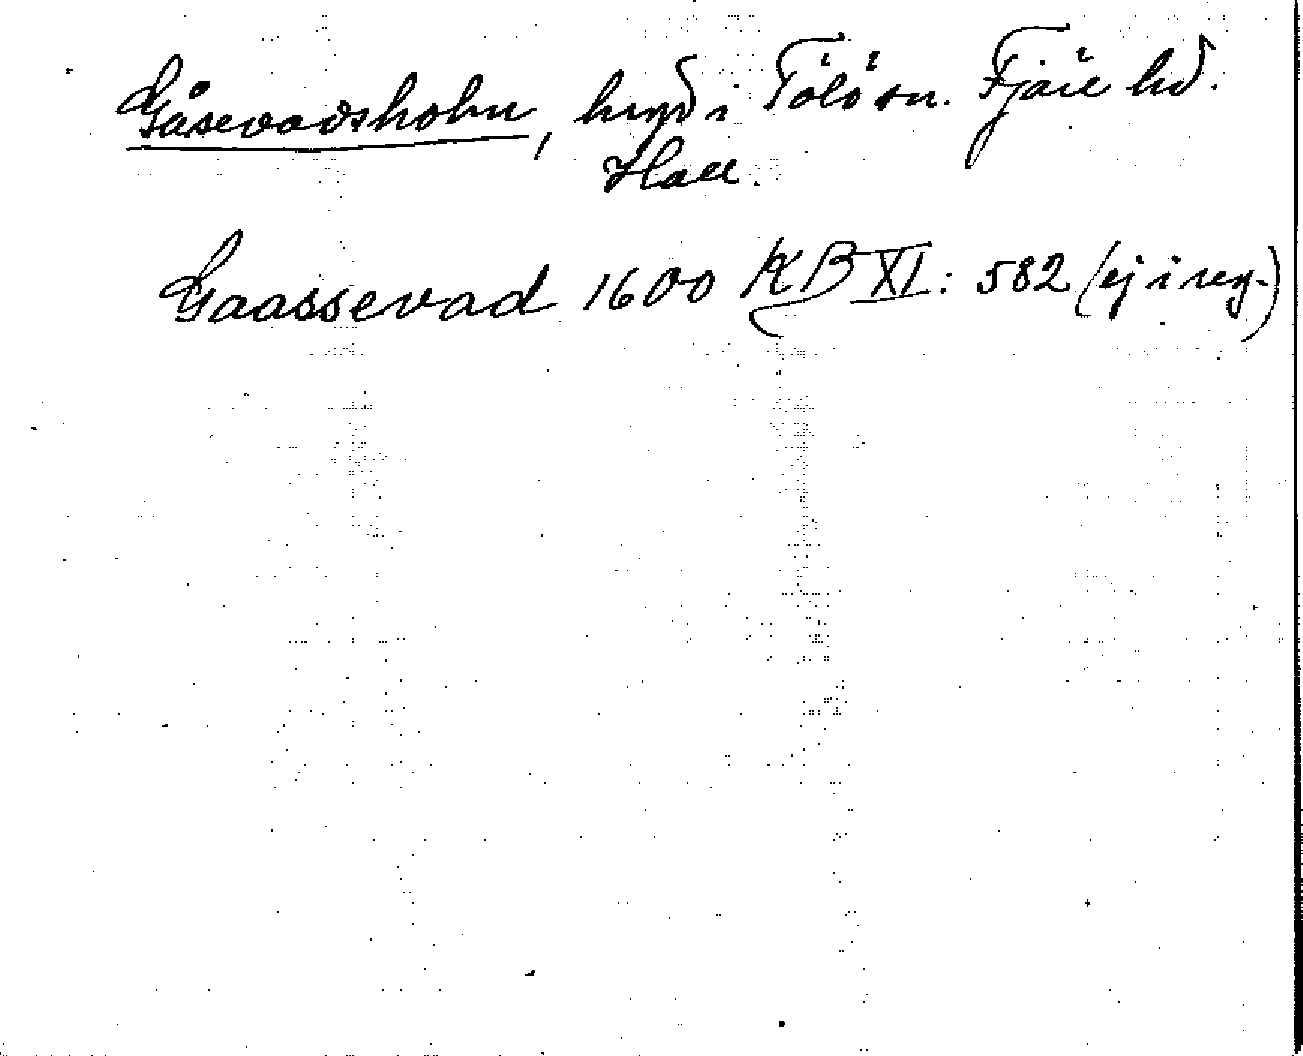 Gåsevadsholm, hrgd i Tölö sn. Fjäre hd.
Hall.
Gaassevad 1600 KB XI: 582 (ej i reg.)